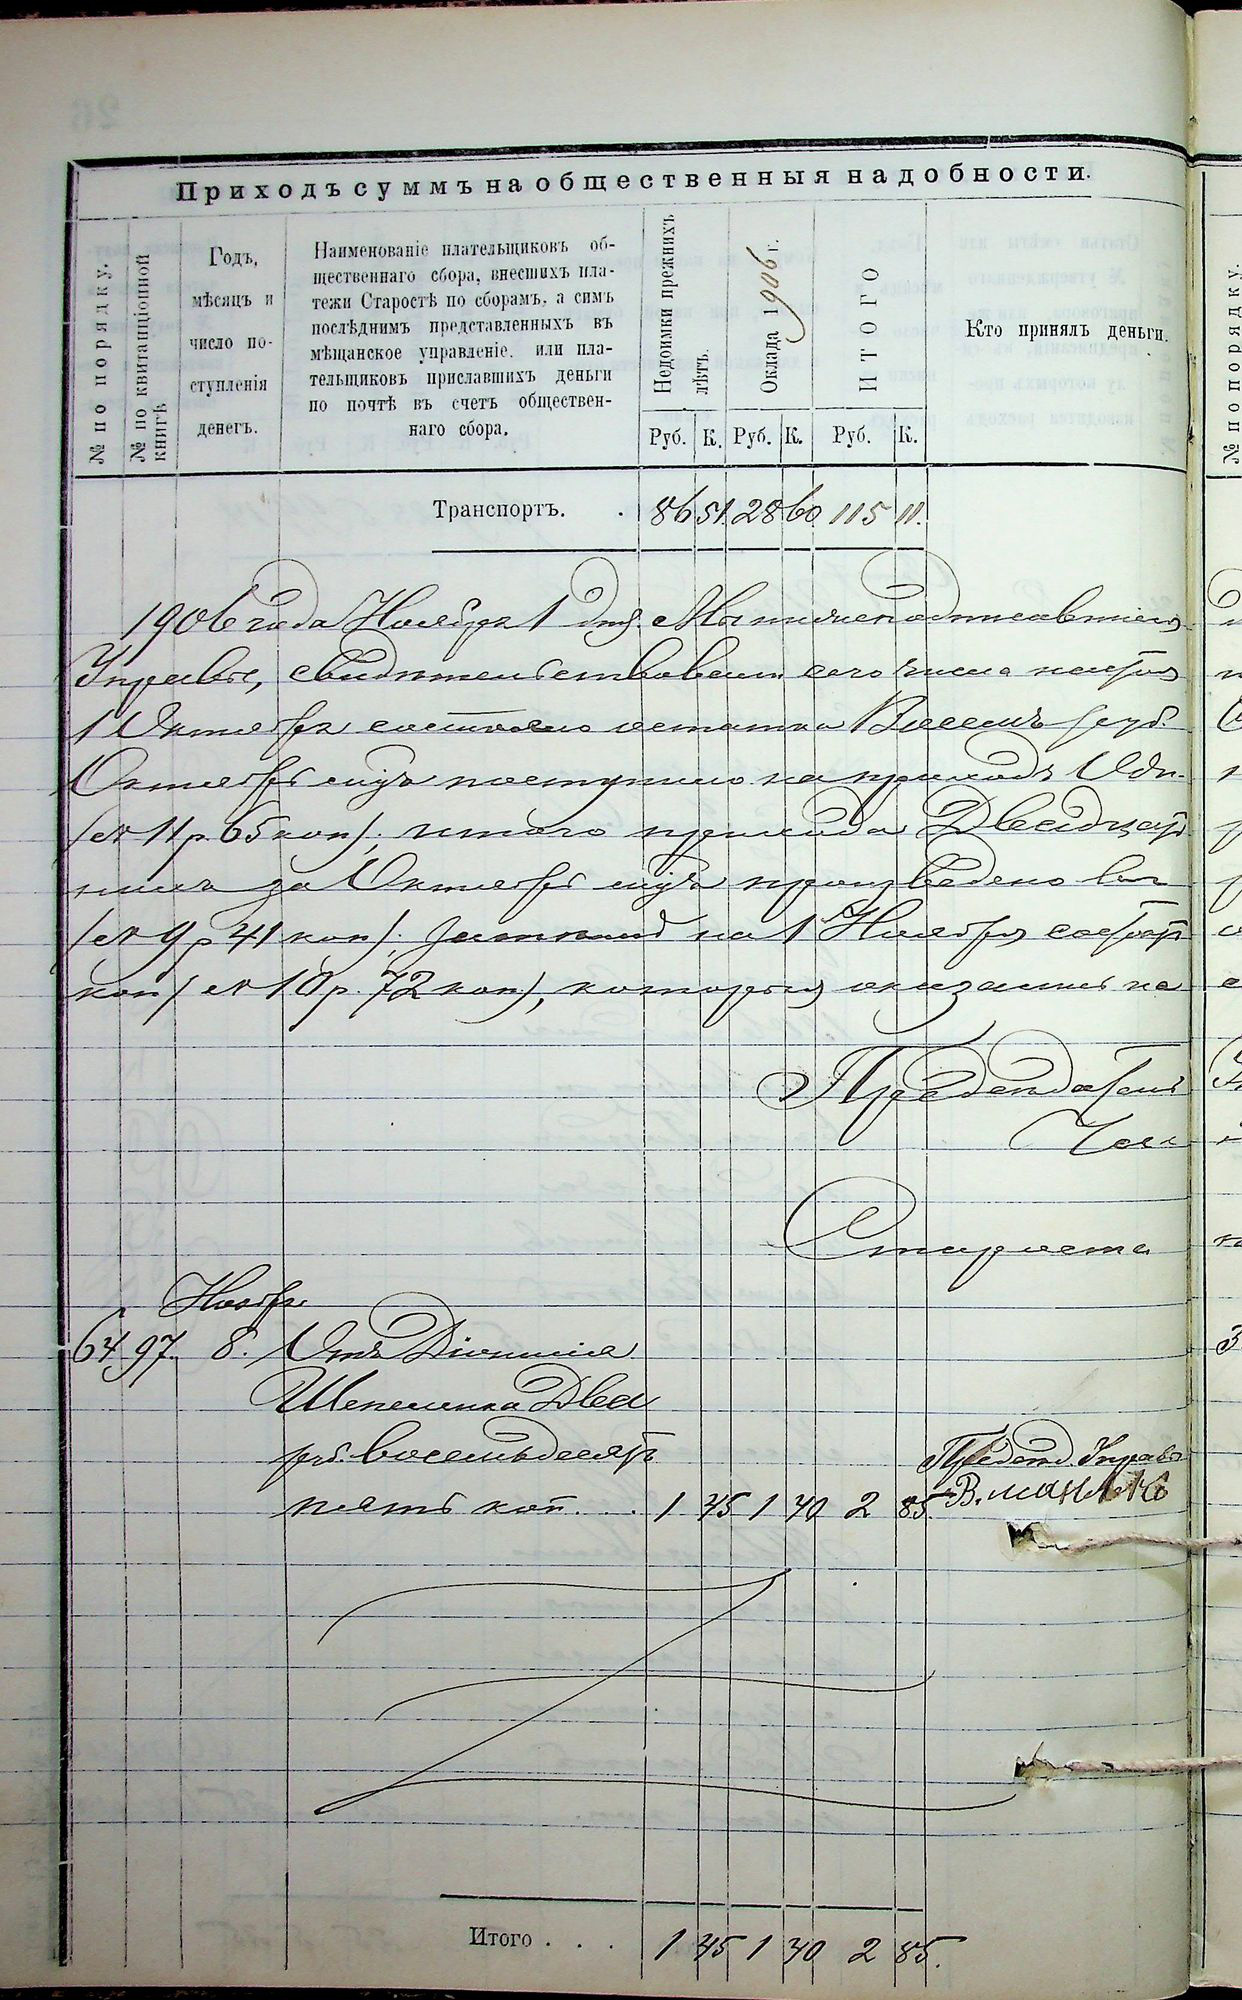 Приходъ суммъ на общественныя надобности.
№ по порядку.
№ по квитанціонной
книгѣ
Годъ,
мѣсяцъ и
число по-
ступленія
денегъ.
Наименованіе плательщиковъ об-
щественнаго сбора, внесшихъ пла-
тежи Старостѣ по сборамъ, а симъ
послѣднимъ представленныхъ въ
мѣщанское управленіе, или пла-
тельщиковъ приславшихъ деньги
по почтѣ въ счетъ обществен-
наго сбора.
Недоимки прежнихъ
лѣтъ.
Оклада 1906 г.
ИТОГО
Кто принялъ деньги.
Руб. К. Руб. К. Руб. К.
Транспортъ. . 86 51 28 60 115 11.
1906 года Ноября 1 дня. Мы нижеподписавшіеся
Управы, свидѣтельствовали сего числа
1 Октября состояло остатка Восемь руб.
Октябрѣ мцѣ поступило на приходъ Оди-
11 р. 65 коп); итого прихода Двадцать
за Октябрь мцъ произведено
9 р 41 коп). Затѣмъ на 1 Ноября состоитъ
коп) 10 р. 72 коп), которыя оказались на
Председатель
Чле
Староста
Ноября
64 97. 8. Отъ Діонисія
Шепеленка Два
руб. восемьдесятъ
пять коп. . . 1 45 1 40 2 85.
Председ. Управы
Итого . . . 1 45 1 40 2 85.
№ по порядку.